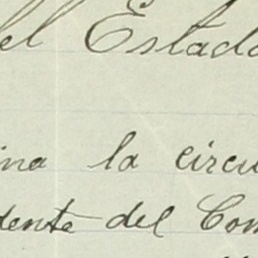 el Estado
ina la circu
dente del Com